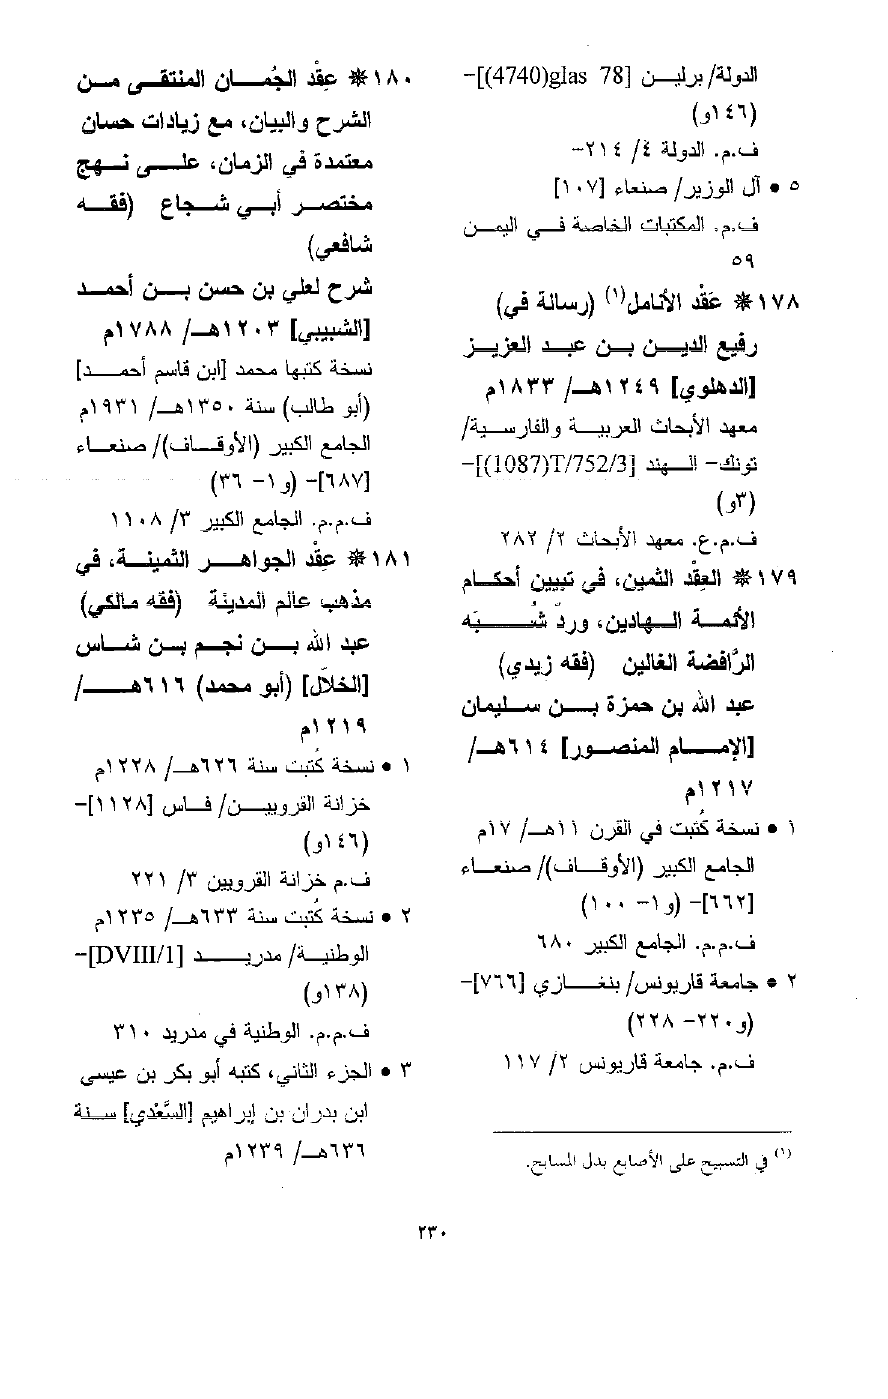 الدولة/ برلين [78 glas(4740)]-
(١٤٦و)
ف.م. الدولة ٤/ ٢١٤-
٥ ● آل الوزير/ صنعاء [١٠٧]
ف.م. المكتبات الخاصة في اليمن
٥٩
١٧٨❋ عَقْد الأنامل(١) (رسالة في)
رفيع الدين بن عبد العزيز
[الدهلوي] ١٢٤٩هـ/ ١٨٣٣م
معهد الأبحاث العربية والفارسية/
تونك- الهند [T/752/3(1087)]-
(٣و)
ف.م.ع. معهد الأبحاث ٢/ ٢٨٢
١٧٩❋ العِقْد الثمين، في تبيين أحكام
الأئمة الهادين، وردّ شُبَه
الرَّافضة الغالين (فقه زيدي)
عبد الله بن حمزة بن سليمان
[الإمام المنصور] ٦١٤هـ/
١٢١٧م
١ ● نسخة كُتبت في القرن ١١هـ/ ١٧م
الجامع الكبير (الأوقاف)/ صنعاء
[٦٦٢]- (و١- ١٠٠)
ف.م.م. الجامع الكبير ٦٨٠
٢ ● جامعة قاريونس/ بنغازي [٧٦٦]-
(و٢٢٠- ٢٢٨)
ف.م. جامعة قاريونس ٢/ ١١٧
(١) في التسبيح على الأصابع بدل المسابح.
١٨٠❋ عِقْد الجُمان المنتقى من
الشرح والبيان، مع زيادات حسان
معتمدة في الزمان، على نهج
مختصر أبي شجاع (فقه
شافعي)
شرح لعلي بن حسن بن أحمد
[الشبيبي] ١٢٠٣هـ/ ١٧٨٨م
نسخة كتبها محمد [ابن قاسم أحمد]
(أبو طالب) سنة ١٣٥٠هـ/ ١٩٣١م
الجامع الكبير (الأوقاف)/ صنعاء
[٦٨٧]- (و١- ٣٦)
ف.م.م. الجامع الكبير ٣/ ١١٠٨
١٨١❋ عِقْد الجواهر الثمينة، في
مذهب عالم المدينة (فقه مالكي)
عبد الله بن نجم بن شاس
[الخلاّل] (أبو محمد) ٦١٦هـ/
١٢١٩م
١ ● نسخة كُتبت سنة ٦٢٦هـ/ ١٢٢٨م
خزانة القرويين/ فاس [١١٢٨]-
(١٤٦و)
ف.م خزانة القرويين ٣/ ٢٢١
٢ ● نسخة كُتبت سنة ٦٣٣هـ/ ١٢٣٥م
الوطنية/ مدريد [DVIII/1]-
(١٣٨و)
ف.م.م. الوطنية في مدريد ٣١٠
٣ ● الجزء الثاني، كتبه أبو بكر بن عيسى
ابن بدران بن إبراهيم [السَّعْدي] سنة
٦٣٦هـ/ ١٢٣٩م
٢٣٠